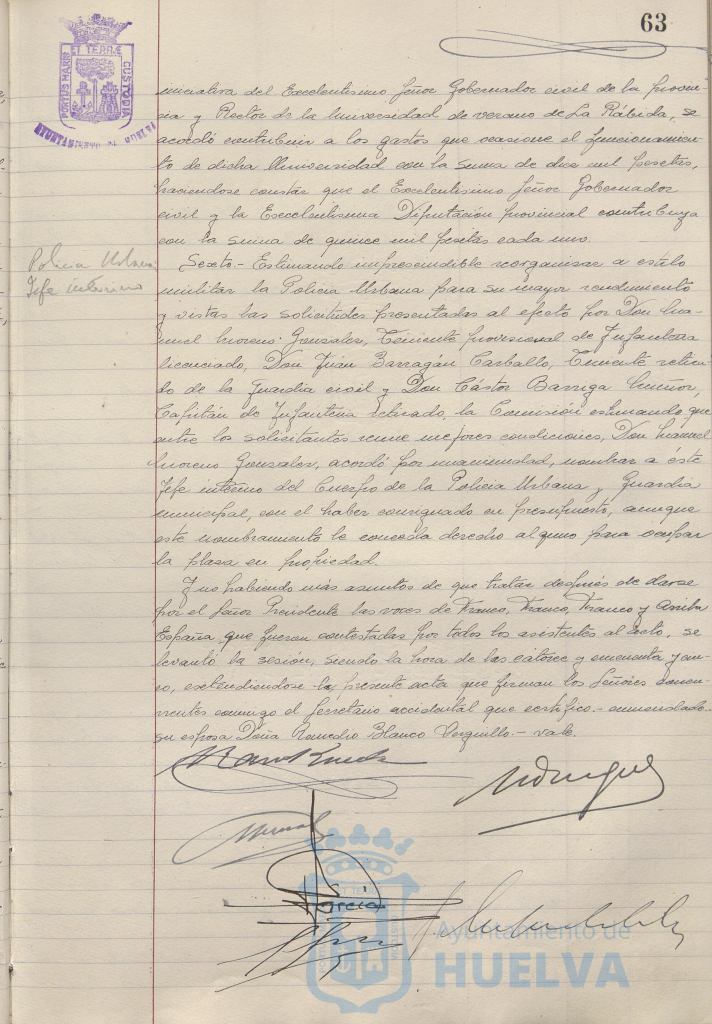 63
PORTUS MARIS ET TERRÆ CUSTODIA
AYUNTAMIENTO DE HUELVA
iniciativa del Excelentísimo Señor Gobernador civil de la provin-
cia y Rector de la Universidad de verano de La Rábida, se
acordó contribuir a los gastos que ocasione el funcionamien-
to de dicha Universidad con la suma de diez mil pesetas,
haciendose constar que el Excelentísimo Señor Gobernador
civil y la Excelentísima Diputación provincial contribuya
con la suma de quince mil pesetas cada uno.
Policia Urbana
Jefe interino
Sexto.- Estimando imprescindible reorganizar a estilo
militar la Policia Urbana para su mayor rendimiento
y vistas las solicitudes presentadas al efecto por Don Ma-
nuel Moreno Gonzalez, Teniente provisional de Infanteria
licenciado, Don Juan Barragán Carballo, Teniente retira-
do de la Guardia civil y Don Cástor Barriga
Capitán de Infanteria retirado, la Comisión estimando que
entre los solicitantes reune mejores condiciones, Don Manuel
Moreno Gonzalez, acordó por unanimidad, nombrar a éste
Jefe interino del Cuerpo de la Policia Urbana y Guardia
municipal, con el haber consignado en presupuesto, aunque
este nombramiento le conceda derecho alguno para ocupar
la plaza en propiedad.
Y no habiendo más asuntos de que tratar después de darse
por el Señor Presidente las voces de Franco, Franco, Franco y Arriba
España, que fueron contestadas por todos los asistentes al acto, se
levantó la sesión, siendo la hora de las catorce y cincuenta y cin-
co, extendiendose la presente acta que firman los Señores concu-
rrentes conmigo el Secretario accidental que certifico.- enmendado.
su esposa Doña Remedio Blanco Verguillo.- vale.
Garcia
Ayuntamiento de
HUELVA